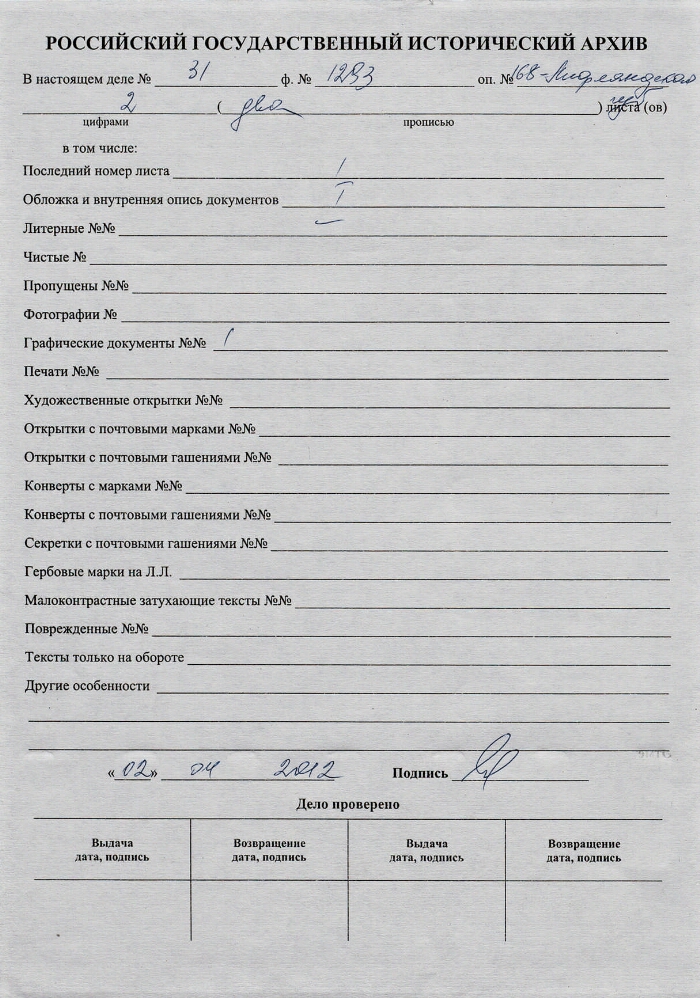 РОССИЙСКИЙ ГОСУДАРСТВЕННЫЙ ИСТОРИЧЕСКИЙ АРХИВ
В настоящем деле № 31 ф. № 1293 оп. № 168-Лифляндская
2 (два) листа (ов)
цифрами прописью
в том числе:
Последний номер листа 1
Обложка и внутренняя опись документов I
Литерные №№ —
Чистые №
Пропущены №№
Фотографии №
Графические документы №№ 1
Печати №№
Художественные открытки №№
Открытки с почтовыми марками №№
Открытки с почтовыми гашениями №№
Конверты с марками №№
Конверты с почтовыми гашениями №№
Секретки с почтовыми гашениями №№
Гербовые марки на Л.Л.
Малоконтрастные затухающие тексты №№
Поврежденные №№
Тексты только на обороте
Другие особенности
«02» 04 2012 Подпись
Дело проверено
Выдача Возвращение Выдача Возвращение
дата, подпись дата, подпись дата, подпись дата, подпись